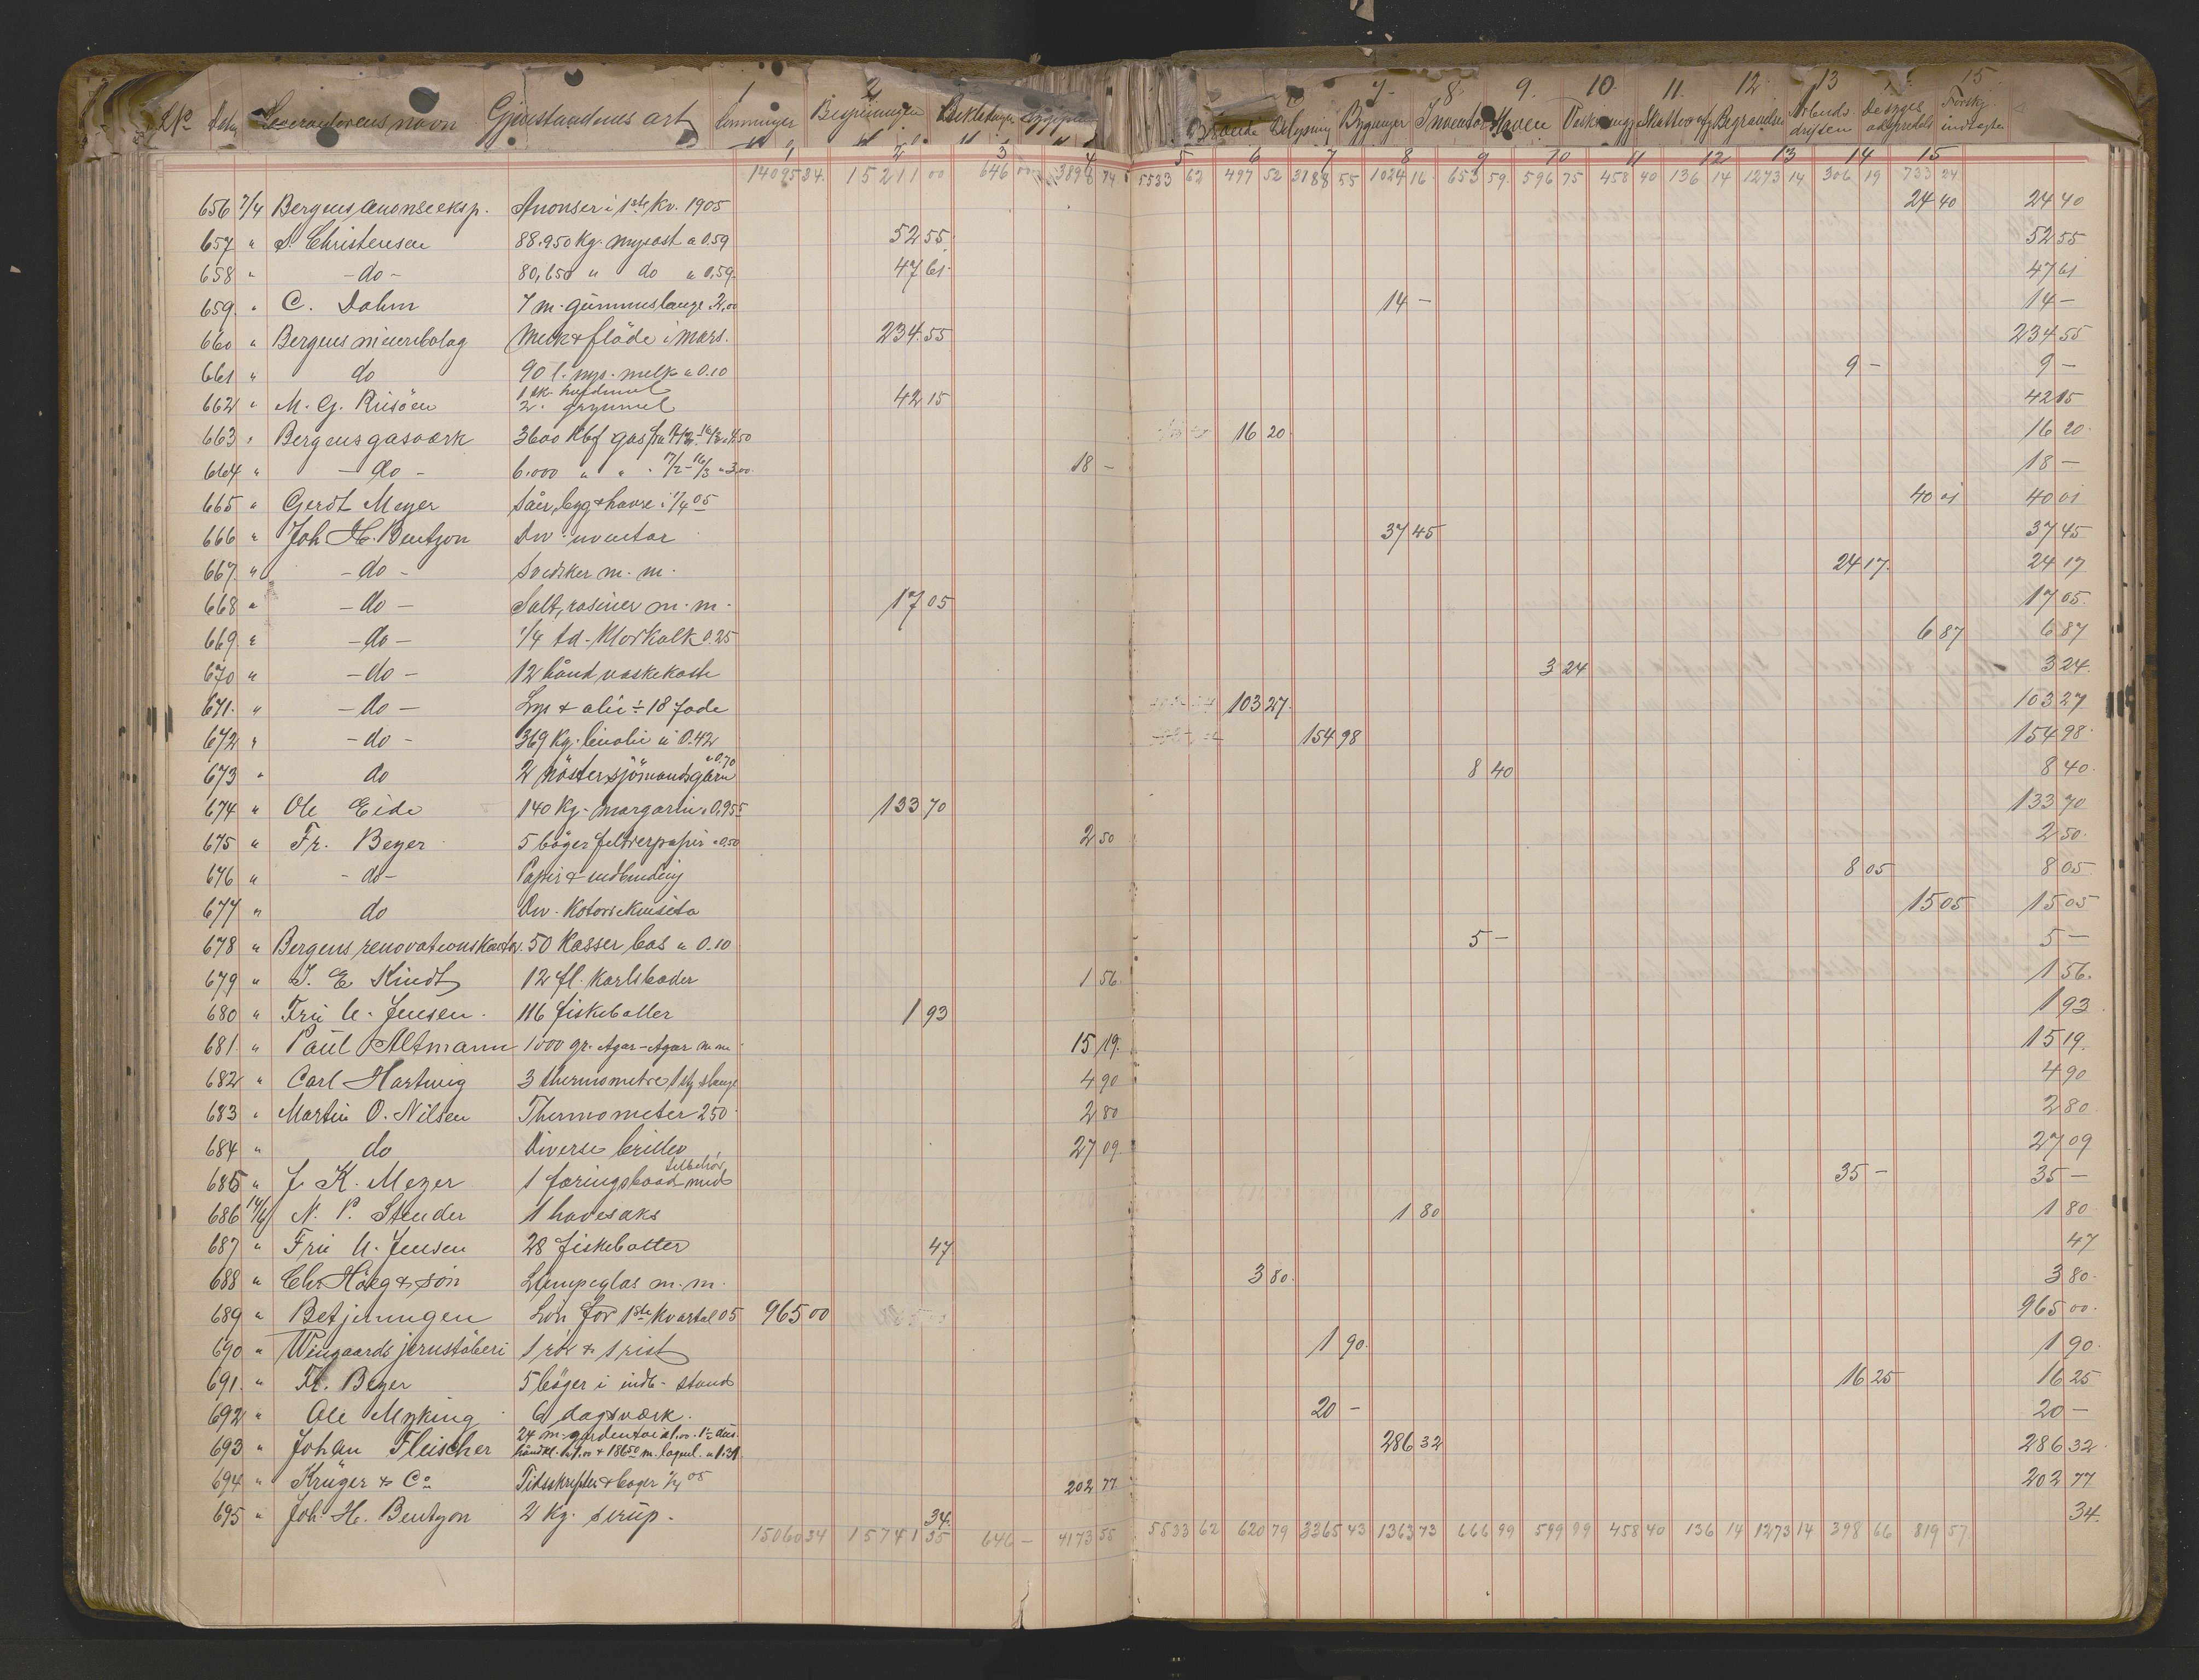 No Leverandørens navn Gjenstandens art Lønninger Bespisningen Beklædningen Sygepleie Brænde Belysning Bygninger Inventar Haven Vaskning Skatter Begravelser Arbeids driften
1 2 7 8 9. 10. 11. 12 13 15
1 2 3 4 5 6 7 8 9 10 11 12 13 14 15
14095 34 15211 00 646 00 3898 74 5533 62 497 52 3188 55 1024 16 653 59 596 75 458 40 136 14 1273 14 306 19 733 24
656 7/4 Bergens anonseeksp. Anonser i 1ste Kv. 1905 24 40 24 40
657 " S. Christensen 88.950 kg. mysost a 0.59 52 55 52 55
658 " - do - 80,650 " do " 0.59 47 61 47 61
659 " C. Dahm 7 m. gummislange 2,00 14 - 14 -
660 " Bergens meieribolag Melk & fløde i mars. 234 55 234 55
661 " do 90 l. nys. melk a 0.10 9 - 9 -
662 " M. G. Risöen 1 sk. hvedmel 2 " grymel 42 15 42 15
663 " Bergens gasværk 3600 Kbf gas 16 20 16 20
664 " - do - 6.000 " " " 17/2 - 16/3 a 3,00 18 - 18 -
665 " Gerdt Meyer Såer, byg & havre i 1/4 05 40 01 40 01
666 " Joh. H. Bentzon Div. inventar 37 45 37 45
667 " - do - Svedsker m. m. 24 17 24 17
668 " - do - Salt, rosiner m. m. 17 05 17 05
669 " - do - 1/4 td. Klorkalk 0.25 6 87 6 87
670 " - do - 12 bånd vaskekoste 3 24 3 24
671 " - do - Lys & olie ÷ 18 fade 103 27 103 27
672 " - do - 369 kg. linolie a 0.42 154 98 154 98
673 " do 2 nøster sjömandsgarn a 0.70 8 40 8 40
674 " Ole Eide 140 kg. margarin a 0.955 133 70 133 70
675 " Fr. Beyer 5 bøger filtrerpapir a 0.50 2 50 2 50
676 " - do - Papir & indbinding 8 05 8 05
677 " do Div. Kontorrekvisita 15 05 15 05
678 " Bergens renovationskontor. 50 Kasser bos a 0.10 5 - 5 -
679 " J. E. Kindt 12 fl. Karlsbader 1 56 1 56
680 " Frü U. Jensen 116 fiskeboller 1 93 1 93
681 " Paul Altmann 1000 gr. Agar-Agar m m 15 19 15 19
682 " Carl Hartwig 3 thermometre 1 st slange 4 90 4 90
683 " Martin O. Nilsen Thermometer 250 2 80 2 80
684 " do Diverse briller 27 09 27 09
685 " J. K. Meyer 1 færingsbaad med tilbehör 35 - 35 -
686 14/6 N. P. Stender 1 havesaks 1 80 1 80
687 " Frü U. Jensen 28 fiskeboller 47 47
688 " Chr Höeg & sön Lampeglas m. m. 3 80 3 80
689 " Betjeningen Lön for 1ste Kvartal 05 965 00 965 00
690 " Wingaards jernstöberi 1 rör & 1 rist 1 90 1 90
691 " Fr. Beyer 5 bøger i indb- stand 16 25 16 25
692 " Ole Myking 6 dagsværk. 20 - 20 -
693 " Johan Fleischer 24 m. gardentøi a 1.00. 1½ dus. håndkl. a 9.00 & 186 50 m. lagnl. a 1.31 286 32 286 32
694 " Krüger & Co Tidsskrifter & bøger 1/4 05 202 77 202 77
695 " Joh. H. Bentzon 2 kg. sirup. 34 34
15060 34 15741 35 646 - 4173 55 5533 62 620 79 3365 43 1363 73 666 99 599 99 458 40 136 14 1273 14 398 66 819 57